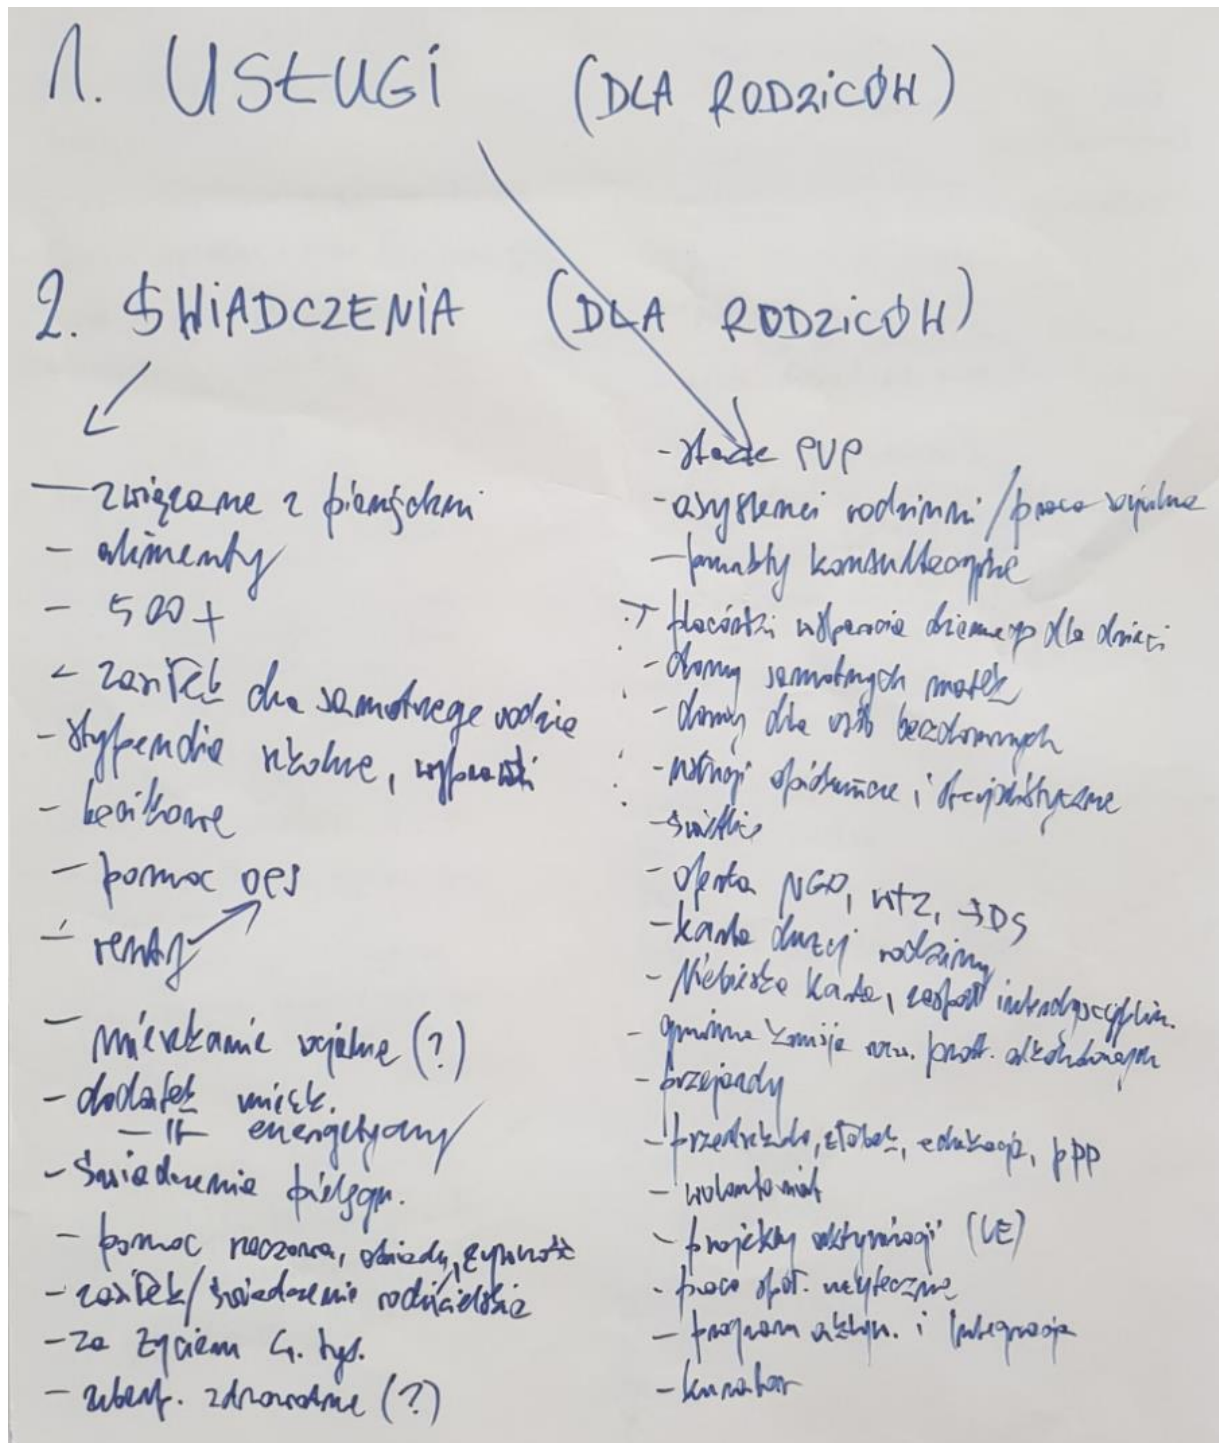 1. USŁUGI (DLA RODZICÓW)
2. ŚWIADCZENIA (DLA RODZICÓW)
- związane z pieniędzmi
- alimenty
- 500+
- zasiłek dla samotnego rodzica
- stypendia szkolne, wyprawki
- becikowe
- pomoc OPS
- renty
- mieszkanie socjalne (?)
- dodatek mieszk.
- ıı - energetyczny
- świadczenia pielęgn.
- pomoc rzeczowa, obiady, żywność
- zasiłek/świadczenie rodzicielskie
- za życiem 4. tys.
- ubezp. zdrowotne (?)
- staże PUP
- asystenci rodzinni/praca socjalna
- punkty konsultacyjne
- placówki wsparcia dziennego dla dzieci
- domy samotnych matek
- domy dla osób bezdomnych
- usługi opiekuńcze i specjalistyczne
- świetlice
- oferta NGO, WTZ, ŚDS
- karta dużej rodziny
- Niebieska Karta, zespół interdyscyplin.
- gminna komisja roz. probl. alkoholowych
- przejazdy
- przedszkola, żłobek, edukacja, PPP
- wolontariat
- projekty aktywizacji (UE)
- prace społ. użyteczne
- program aktyw. i integracja
- kurator